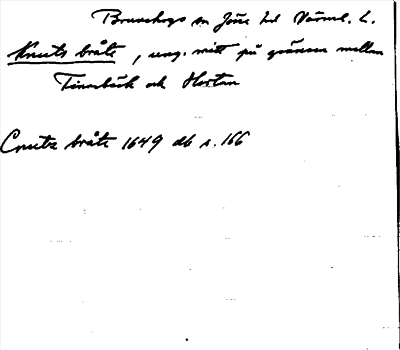 Brunskogs sn Jösse hd Värml. l.
Knuts bråte, ung. mitt på gränsen mellan
Timrbäck och Hortan
Cnutz bråte 1649 db s. 166